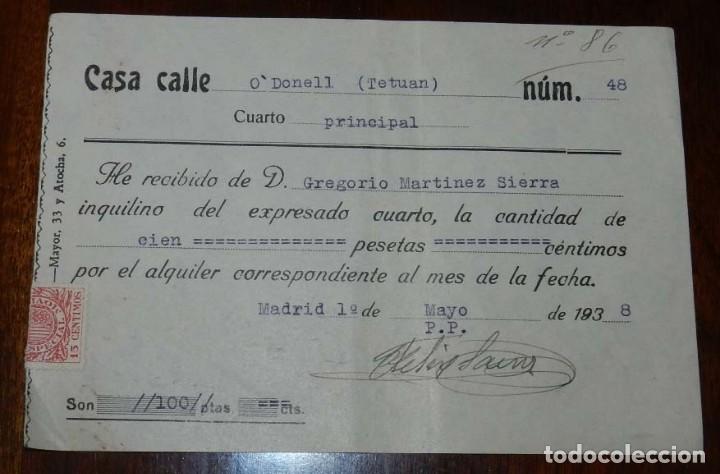 nº 86
Casa calle O`Donell (Tetuan) núm. 48
Cuarto principal
He recibido de D. Gregorio Martinez Sierra
inquilino del expresado cuarto, la cantidad de
cien ============== pesetas =========== céntimos
por el alquiler correspondiente al mes de la fecha.
Madrid 1º de Mayo de 1938
P.P.
Felix
Son //100// ptas. === cts.
—Mayor, 33 y Atocha, 6.
ESPECIAL
15 CENTIMOS
todocoleccion.net